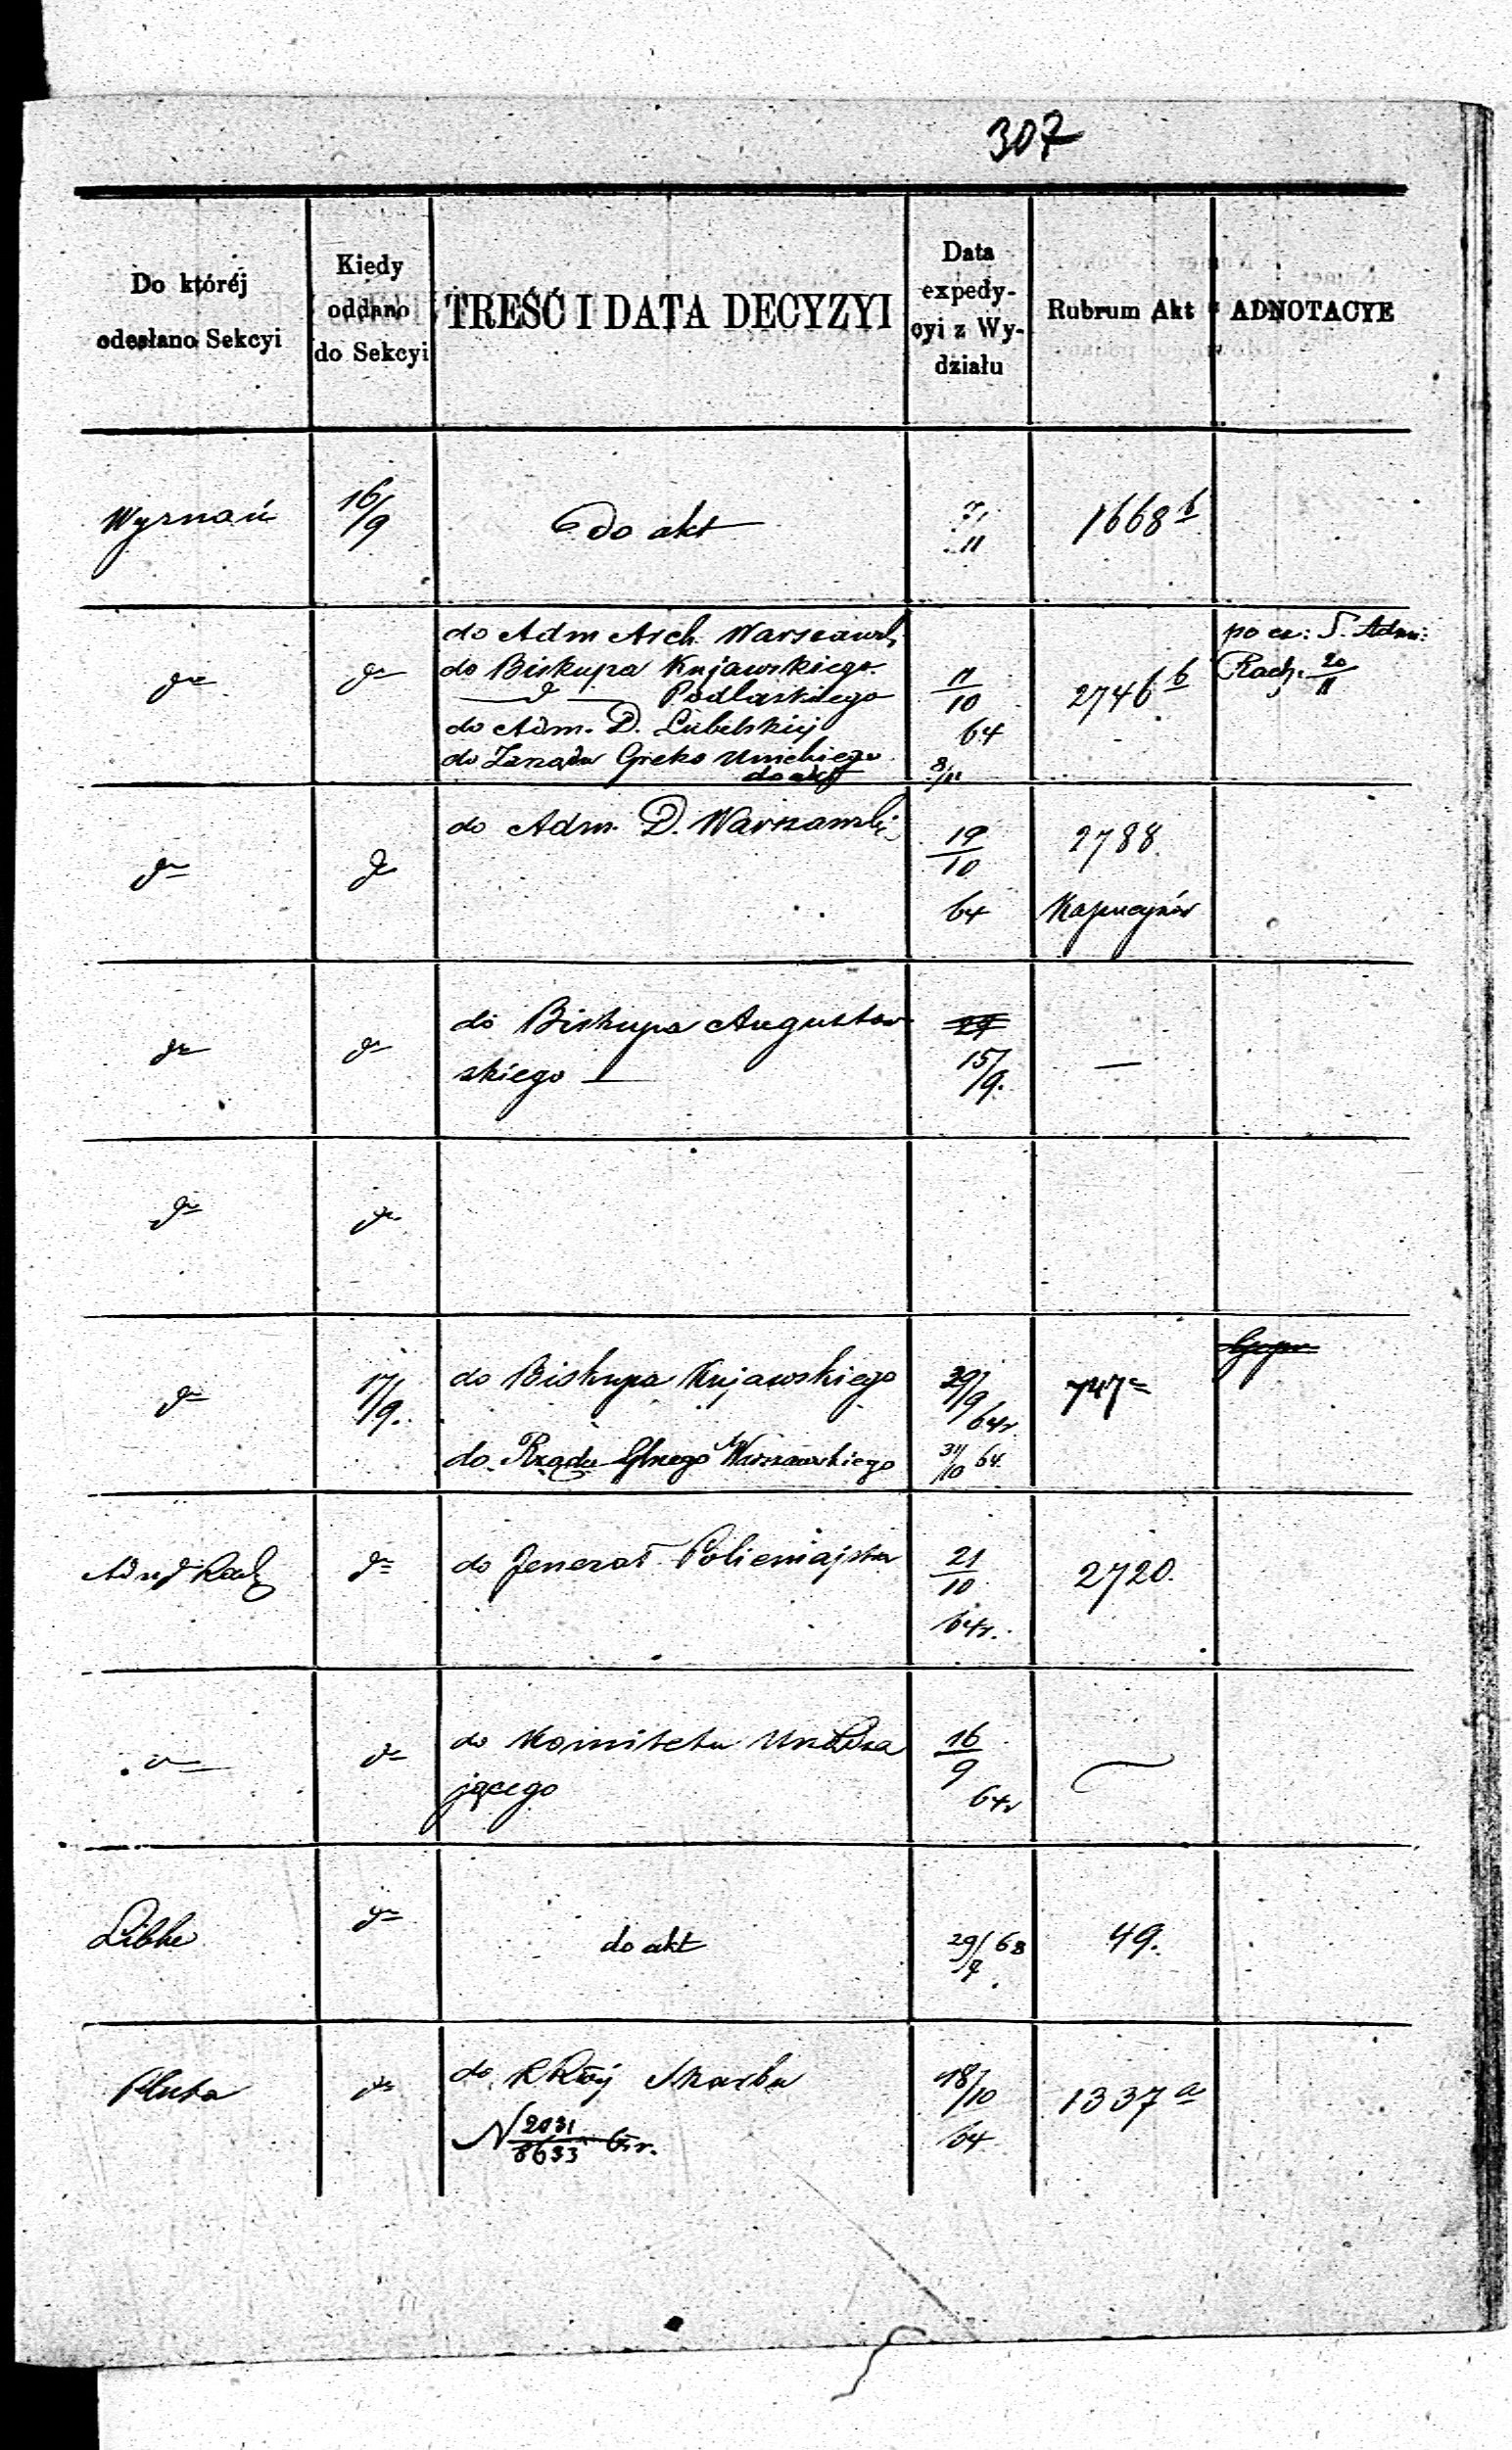 307
Do któréj
odesłano Sekcyi
Kiedy
oddano
do Sekcyi
TREŚĆ I DATA DECYZYI
Data
expedy-
cyi z Wy-
działu
Rubrum Akt
ADNOTACYE
Wyznań 16/9 do akt 7/11 1668 b
do Adm Arch. Warszawsk.
do Biskupa Kujawskiego
d Podlaskiego
do Adm. D. Lubelskiej
do Zarządu Greko Unickiego
do akt
11/10 64
8/11
2746 b
po cz: S. Adm:
Rach. 20/11
do Adm. D. Warszawskiej
19/10 64
2788
Kapucynów
do Biskupa Augustow
skiego —
24
15/9.
—
17/9.
do Biskupa Kujawskiego
29/9 64r.
747
do Rządu Glnego Warszawskiego
31/10 64.
do Jenerał Policmajstra
21/10 64r.
2720.
do Komitetu Urządza
jącego
16/9 64r
do akt
49.
Pluta
do Skarbu
N 2031/8633
18/10 64
1337 a